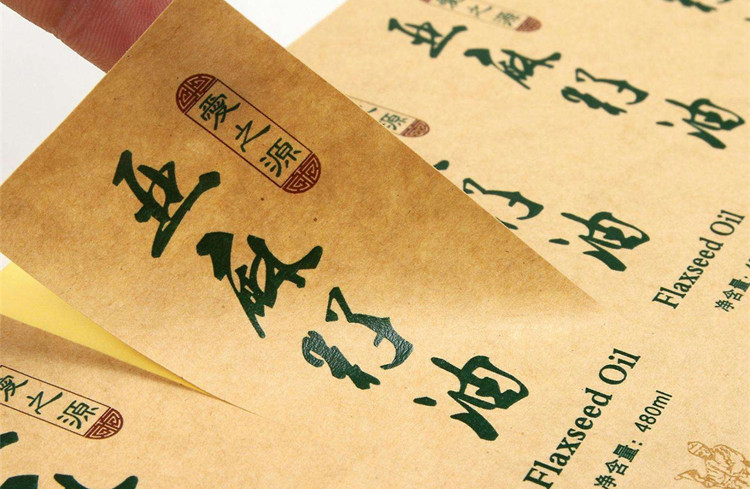 之源
亚麻籽油
源
籽油
Flaxseed Oil
净含量:
愛之源
亚麻籽油
Flaxseed Oil
净含量：480ml
愛之源